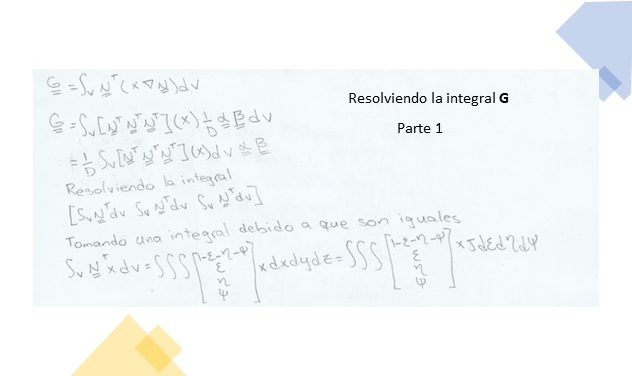 G = ∫v N^T (x ∇ N) dv
Resolviendo la integral G
G = ∫v [N^T N^T N^T] (x) 1/D α β dv
Parte 1
= 1/D ∫v [N^T N^T N^T] (x) dv α β
Resolviendo la integral
[∫v N^T dv ∫v N^T dv ∫v N^T dv]
Tomando una integral debido a que son iguales
∫v N^T x dv = ∫∫∫ [1-ε-η-φ ε η φ] x dx dy dz = ∫∫∫ [1-ε-η-φ ε η φ] x J dε dη dφ